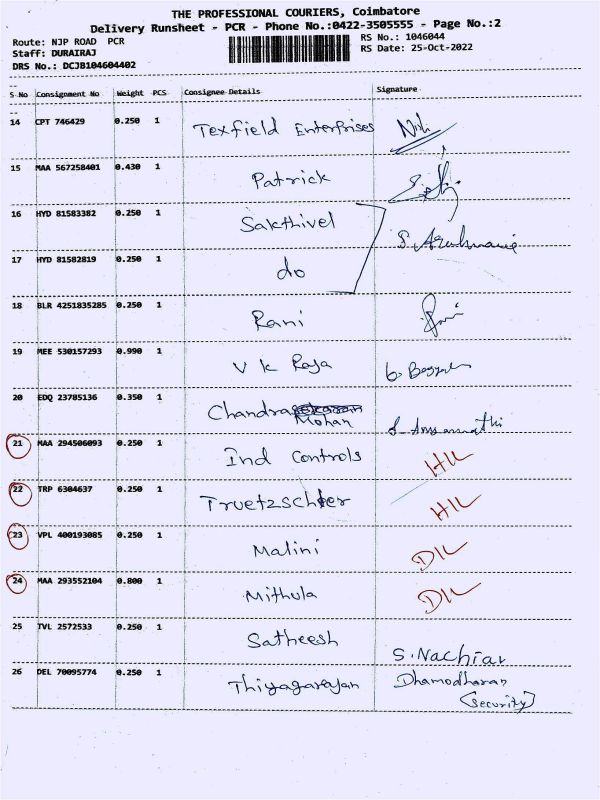 THE PROFESSIONAL COURIERS, Coimbatore
Delivery Runsheet - PCR - Phone No.:0422-3505555 - Page No.:2
Route: NJP ROAD PCR
RS No.: 1046044
Staff: DURAIRAJ
RS Date: 25-Oct-2022
DRS No.: DCJB104604402
S No Consignment No Weight PCS Consignee Details Signature
14 CPT 746429 0.250 1 Texfield Enterprises
15 MAA 567258401 0.430 1 Patrick
16 HYD 81583382 0.250 1 Sakthivel
17 HYD 81582819 0.250 1 do
18 BLR 4251835285 0.250 1 Rani
19 MEE 530157293 0.990 1 V K Raja
20 EDQ 23785136 0.350 1 Chandra Mohan
21 MAA 294506093 0.250 1 Ind Controls
22 TRP 6304637 0.250 1 Truetzschler
23 VPL 400193085 0.250 1 Malini
24 MAA 293552104 0.800 1 Mithula
25 TVL 2572533 0.250 1 Satheesh S. Nachiar
26 DEL 70095774 0.250 1 Thiyagarajan Dhamodharan
(Security)